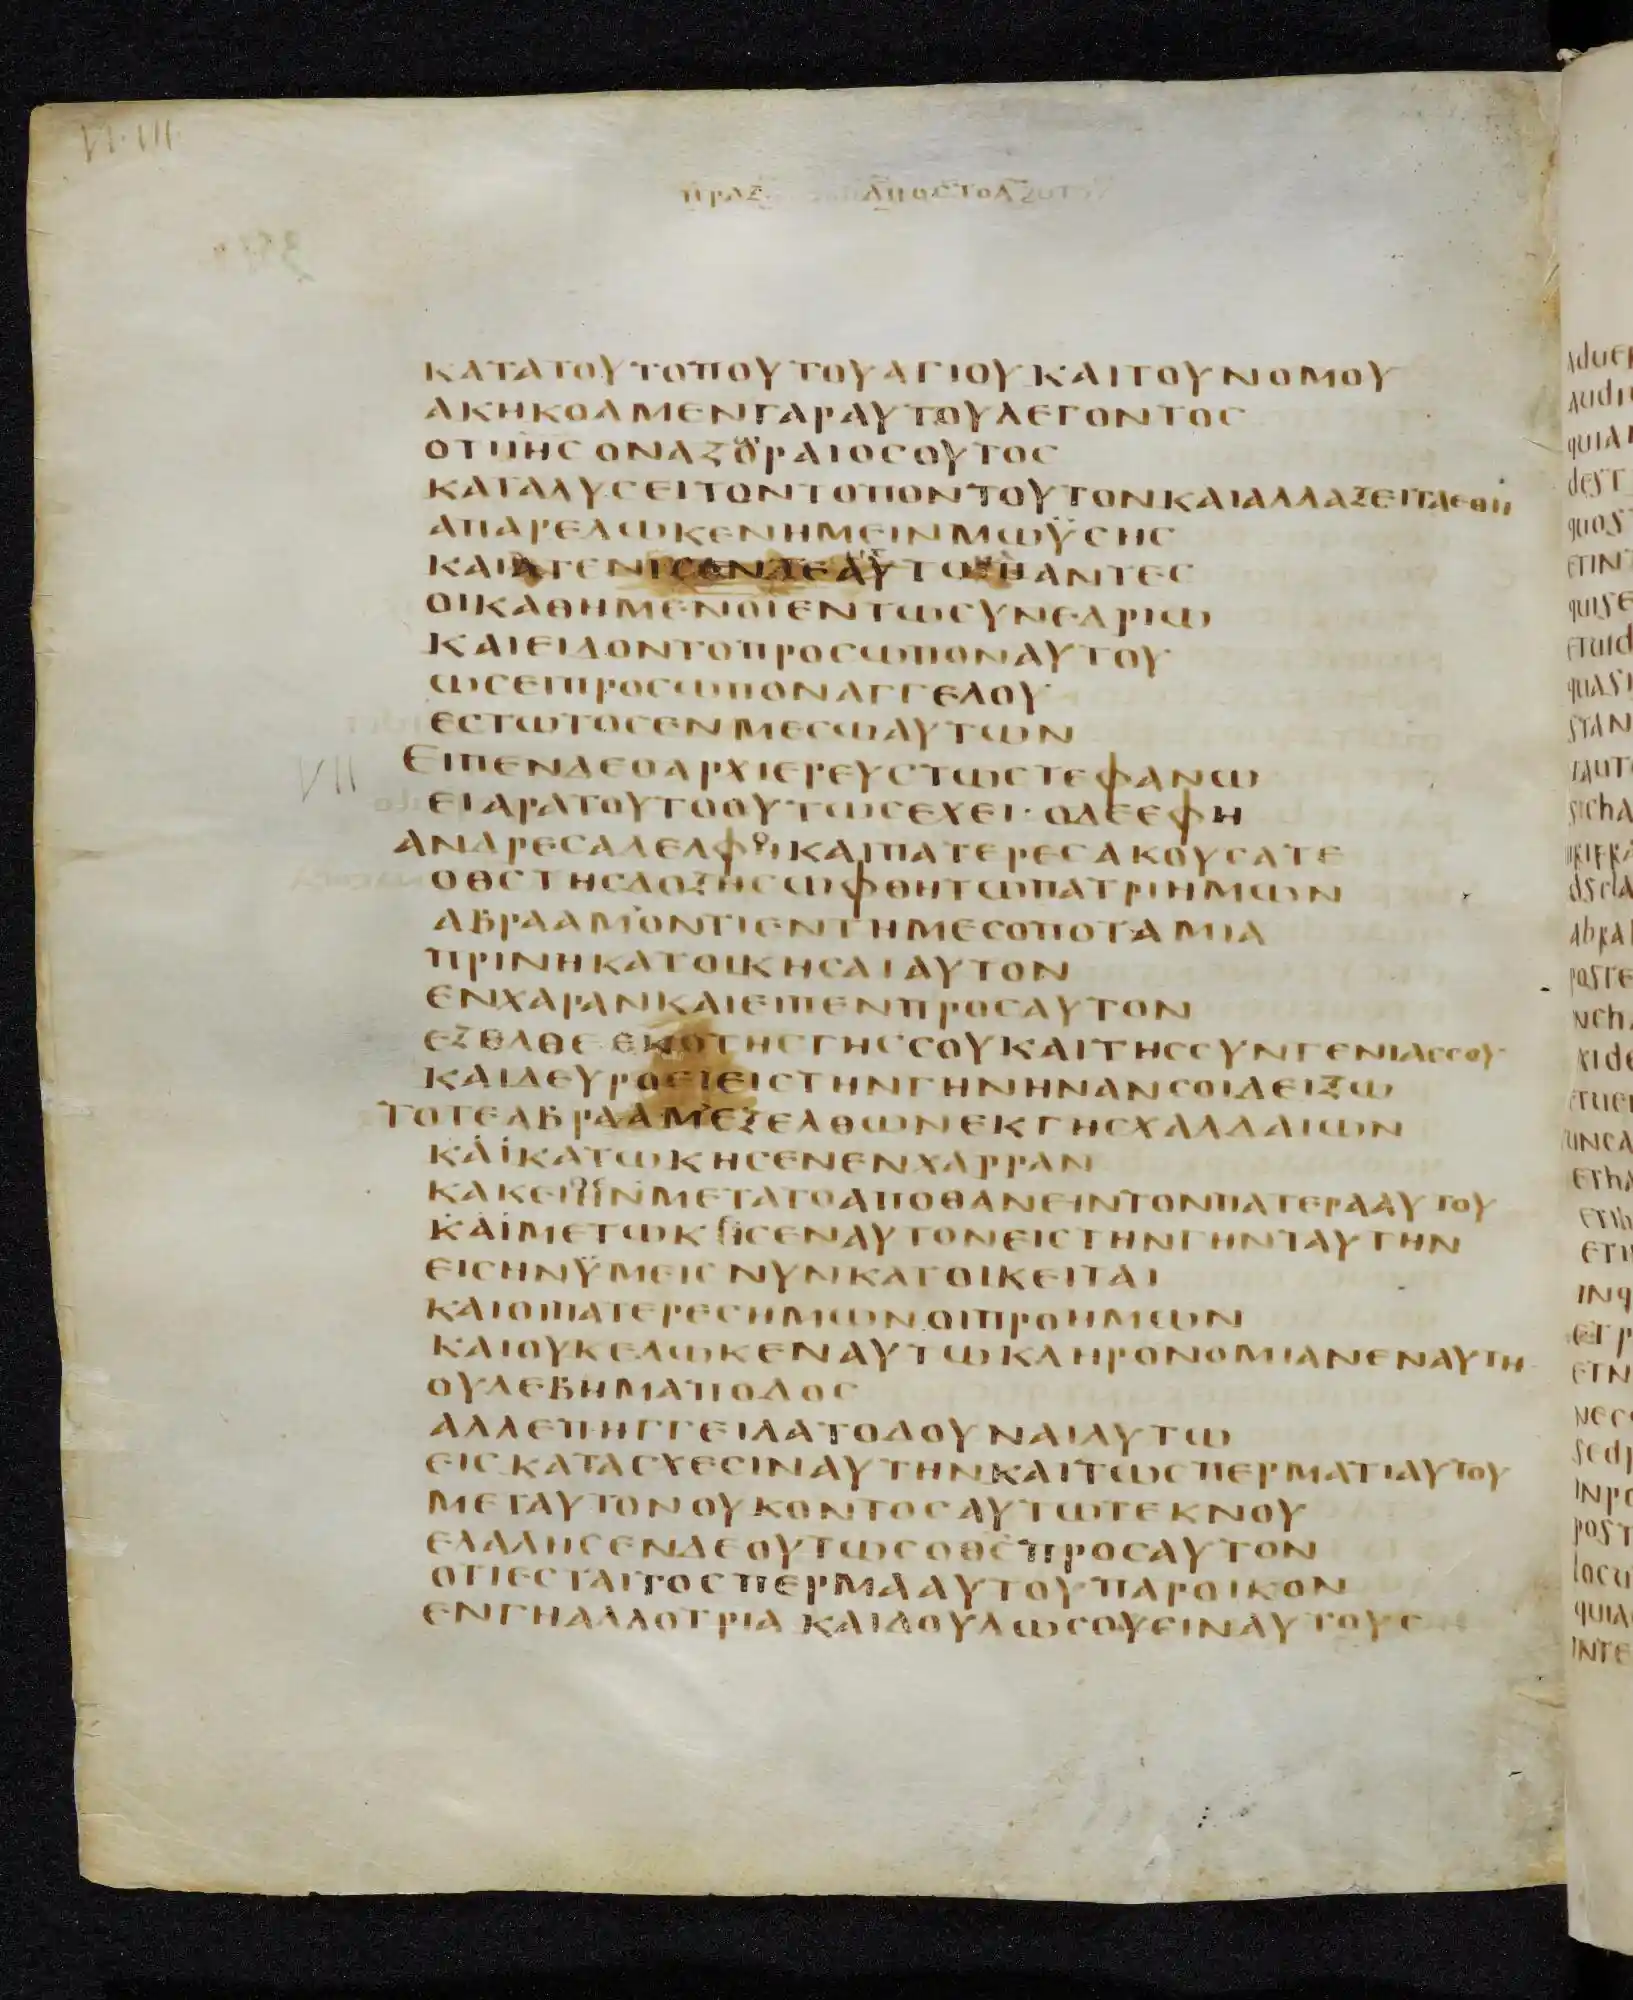 VI·III
ΠΡΑΞ ΑΠΟΣΤΟΛ
ΚΑΤΑΤΟΥΤΟΠΟΥΤΟΥΑΓΙΟΥΚΑΙΤΟΥΝΟΜΟΥ
ΑΚΗΚΟΑΜΕΝΓΑΡΑΥΤΟΥΛΕΓΟΝΤΟϹ
ΟΤΙΙΗϹΟΝΑΖΟΡΑΙΟϹΟΥΤΟϹ
ΚΑΤΑΛΥϹΕΙΤΟΝΤΟΠΟΝΤΟΥΤΟΝΚΑΙΑΛΛΑΞΕΙΤΑΕΘΗ
ΑΠΑΡΕΔΩΚΕΝΗΜΕΙΝΜΩΫϹΗϹ
ΚΑΙΑΤΕΝΙϹΑΝΤΕϹΑΥΤΩΠΑΝΤΕϹ
ΟΙΚΑΘΗΜΕΝΟΙΕΝΤΩϹΥΝΕΔΡΙΩ
ΚΑΙΕΙΔΟΝΤΟΠΡΟϹΩΠΟΝΑΥΤΟΥ
ΩϹΕΙΠΡΟϹΩΠΟΝΑΓΓΕΛΟΥ
ΕϹΤΩΤΟϹΕΝΜΕϹΩΑΥΤΩΝ
VII ΕΙΠΕΝΔΕΟΑΡΧΙΕΡΕΥϹΤΩϹΤΕΦΑΝΩ
ΕΙΑΡΑΤΟΥΤΟΟΥΤΩϹΕΧΕΙ·ΟΔΕΕΦΗ
ΑΝΔΡΕϹΑΔΕΛΦΟΙΚΑΙΠΑΤΕΡΕϹΑΚΟΥϹΑΤΕ
ΟΘϹΤΗϹΔΟΞΗϹΩΦΘΗΤΩΠΑΤΡΙΗΜΩΝ
ΑΒΡΑΑΜΟΝΤΙΕΝΤΗΜΕϹΟΠΟΤΑΜΙΑ
ΠΡΙΝΗΚΑΤΟΙΚΗϹΑΙΑΥΤΟΝ
ΕΝΧΑΡΑΝΚΑΙΕΙΠΕΝΠΡΟϹΑΥΤΟΝ
ΕΞΕΛΘΕΑΠΟΤΗϹΓΗϹϹΟΥΚΑΙΤΗϹϹΥΝΓΕΝΙΑϹϹΟΥ
ΚΑΙΔΕΥΡΟΕΙϹΤΗΝΓΗΝΗΝΑΝϹΟΙΔΕΙΞΩ
ΤΟΤΕΑΒΡΑΑΜΕΞΕΛΘΩΝΕΚΓΗϹΧΑΛΔΑΙΩΝ
ΚΑΪΚΑΤΩΚΗϹΕΝΕΝΧΑΡΡΑΝ
ΚΑΚΕΙΗΝΜΕΤΑΤΟΑΠΟΘΑΝΕΙΝΤΟΝΠΑΤΕΡΑΑΥΤΟΥ
ΚΑΪΜΕΤΩΚΗϹΕΝΑΥΤΟΝΕΙϹΤΗΝΓΗΝΤΑΥΤΗΝ
ΕΙϹΗΝΫΜΕΙϹΝΥΝΚΑΤΟΙΚΕΙΤΑΙ
ΚΑΙΟΙΠΑΤΕΡΕϹΗΜΩΝΟΙΠΡΟΗΜΩΝ
ΚΑΙΟΥΚΕΔΩΚΕΝΑΥΤΩΚΛΗΡΟΝΟΜΙΑΝΕΝΑΥΤΗ
ΟΥΔΕΒΗΜΑΠΟΔΟϹ
ΑΛΛΕΠΗΓΓΕΙΛΑΤΟΔΟΥΝΑΙΑΥΤΩ
ΕΙϹΚΑΤΑϹΧΕϹΙΝΑΥΤΗΝΚΑΙΤΩϹΠΕΡΜΑΤΙΑΥΤΟΥ
ΜΕΤΑΥΤΟΝΟΥΚΟΝΤΟϹΑΥΤΩΤΕΚΝΟΥ
ΕΛΑΛΗϹΕΝΔΕΟΥΤΩϹΟΘϹΠΡΟϹΑΥΤΟΝ
ΟΤΙΕϹΤΑΙΤΟϹΠΕΡΜΑΑΥΤΟΥΠΑΡΟΙΚΟΝ
ΕΝΓΗΑΛΛΟΤΡΙΑ ΚΑΙΔΟΥΛΩϹΟΥϹΙΝΑΥΤΟΥϹ